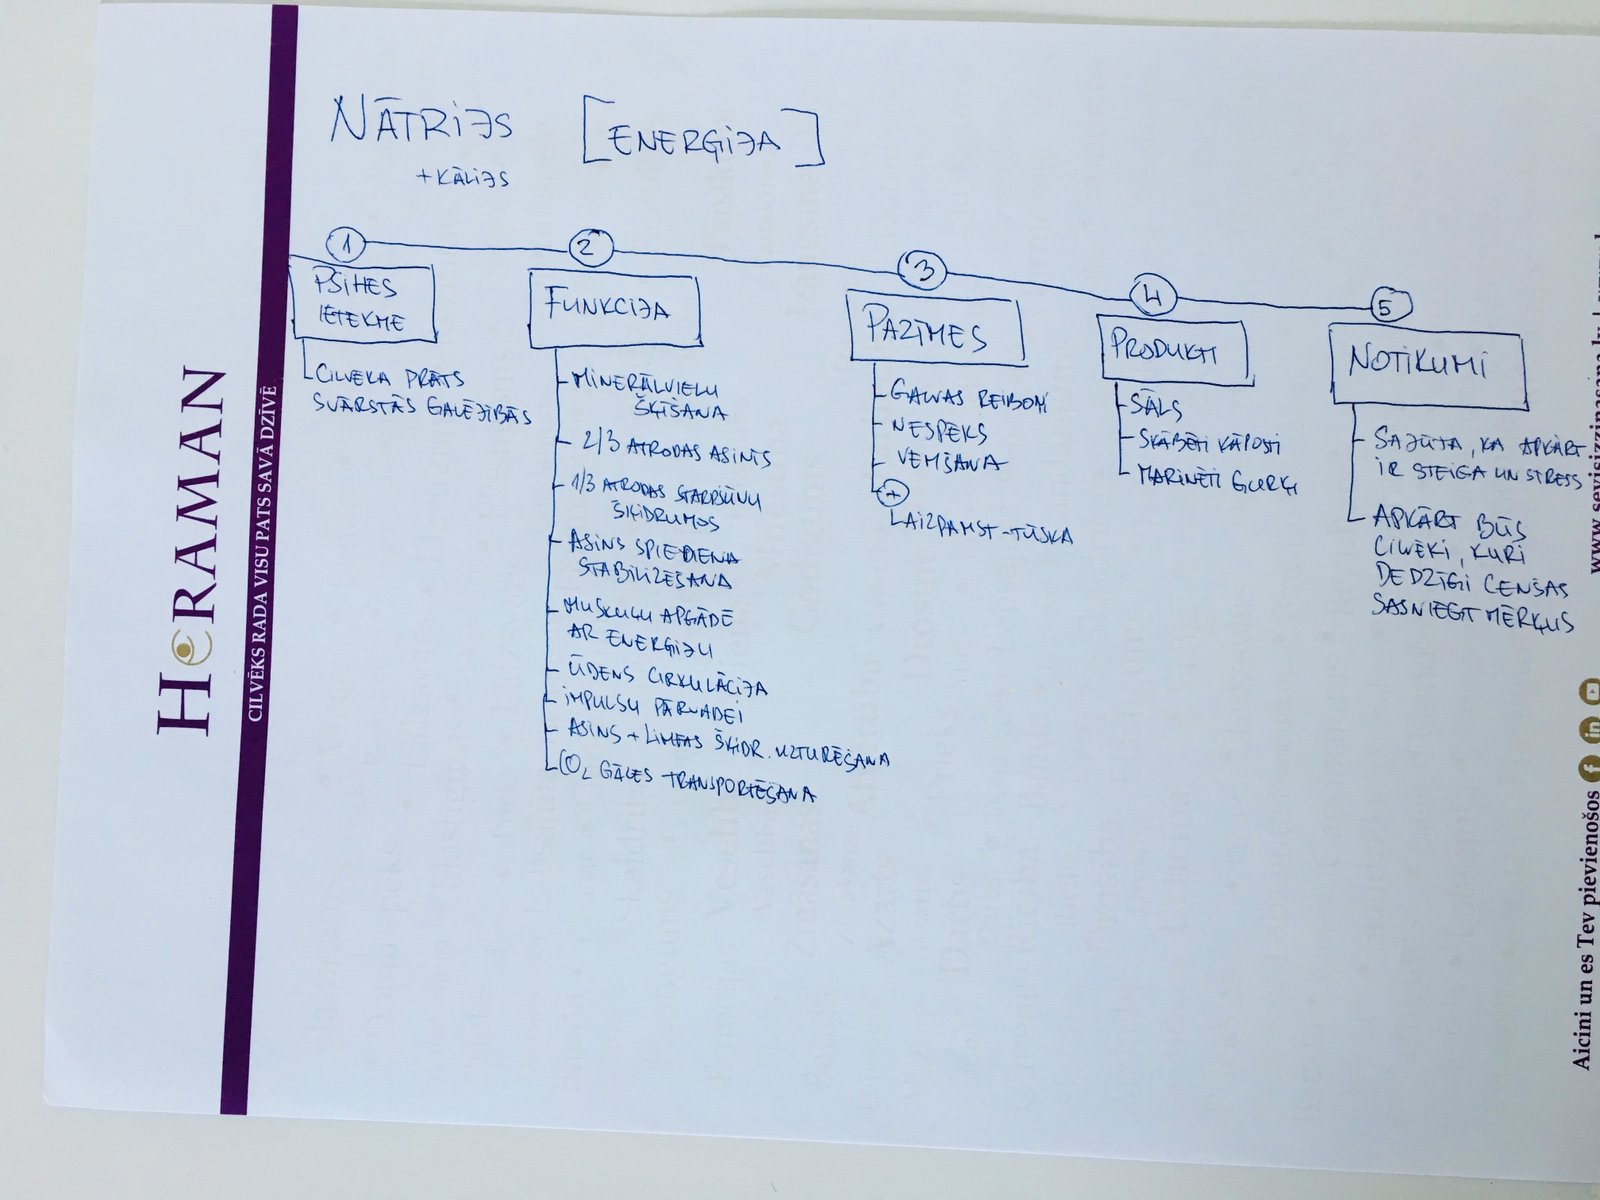 NĀTRIJS [ENERĢIJA]
+KĀLIJS
1
PSIHES
IETEKME
CILVĒKA PRĀTS
SVĀRSTĀS GALĒJĪBĀS
2
FUNKCIJA
MINERĀLVIELU
ŠĶĪŠANA
2/3 ATRODAS ASINĪS
1/3 ATRODAS STARPŠŪNU
ŠĶIDRUMOS
ASINS SPIEDIENA
STABILIZĒŠANA
MUSKUĻU APGĀDE
AR ENERĢIJU
ŪDENS CIRKULĀCIJA
IMPULSU PĀRVADEI
ASINS + LIMFAS ŠĶIDR. UZTURĒŠANA
CO₂ GĀZES TRANSPORTĒŠANA
3
PAZĪMES
GALVAS REIBOŅI
NESPĒKS
VEMŠANA
+
-TŪSKA
4
PRODUKTI
SĀLS
SKĀBĒTI KĀPOSTI
MARINĒTI GURĶI
5
NOTIKUMI
SAJŪTA, KA APKĀRT
IR STEIGA UN STRESS
APKĀRT BŪS
CILVĒKI, KURI
DEDZĪGI CENŠAS
SASNIEGT MĒRĶUS
HORAMAN
CILVĒKS RADA VISU PATS SAVĀ DZĪVĒ
Aicini un es Tev pievienošos